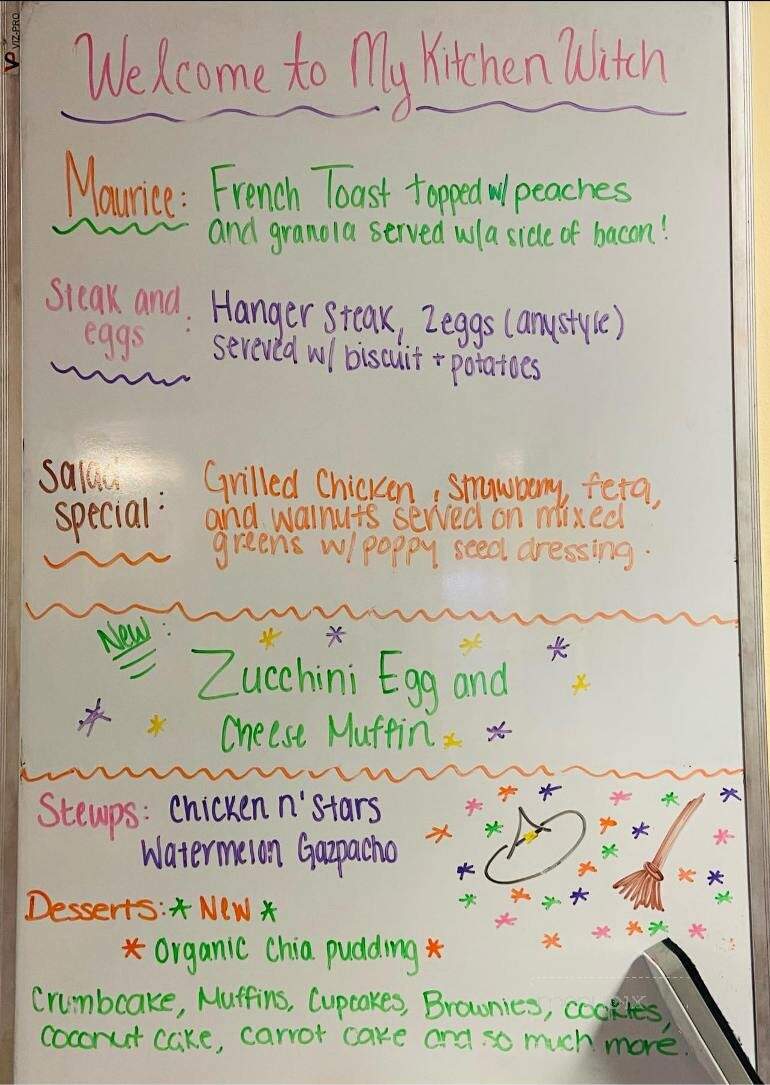 VIZ-PRO
Welcome to My Kitchen Witch
Maurice: French Toast topped w/ peaches
and granola served w/a side of bacon!
Steak and eggs: Hanger Steak, 2eggs (anystyle)
sereved w/ biscuit + potatoes
Salad special: Grilled Chicken, strawberry, feta,
and walnuts served on mixed
greens w/ poppy seed dressing.
New:
Zucchini Egg and
Cheese Muffin
Stewps: Chicken n' Stars
Watermelon Gazpacho
Desserts: * New *
* Organic Chia pudding *
Crumbcake, Muffins, Cupcakes, Brownies, cookies,
coconut cake, carrot cake and so much more.